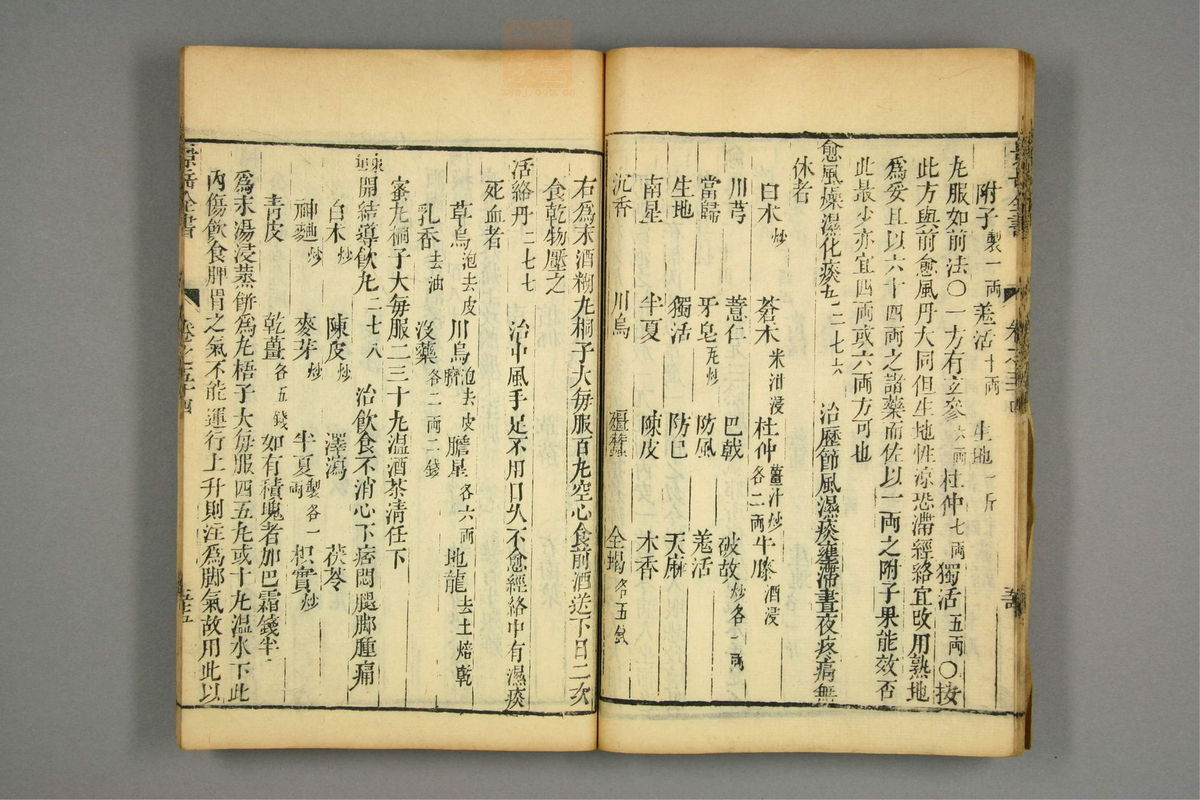 附子製一兩 羌活十兩 生地一斤
丸服如前法〇一方有玄參六兩杜仲七兩獨活五兩〇按
此方與前愈風丹大同但生地性凉恐滯經絡宜改用熟地
爲妥且以六十四兩之諸藥而佐以一兩之附子果能效否
此最少亦宜四兩或六兩方可也
愈風燥濕化痰丸二七六 治歷節風濕痰壅滯晝夜疼痛無
休者
白朮炒 蒼朮米泔浸 杜仲薑汁炒各二兩 牛膝酒浸
川芎 薏仁 巴戟 破故炒各一兩
當歸 牙皂 防風 羌活
生地 獨活 防已 天麻
南星 半夏 陳皮 木香
沉香 川烏 殭蠶 全蝎各五錢
右爲末酒糊丸桐子大每服百丸空心食前酒送下日二次
食乾物壓之
活絡丹二七七 治中風手足不用日久不愈經絡中有濕痰
死血者
草烏泡去皮 川烏泡去皮臍 膽星各六兩 地龍去土焙乾
乳香去油 沒藥各二兩二錢
蜜丸桐子大每服二三十丸温酒茶清任下
開結導飲丸二七八 治飲食不消心下痞悶腿脚腫痛
白朮炒 陳皮炒 澤瀉 茯苓
神麯炒 麥芽炒 半夏製各一兩 枳實炒
青皮 乾薑各五錢 如有積塊者加巴霜錢半
爲末湯浸蒸餅爲丸梧子大每服四五丸或十丸温水下此
內傷飲食脾胃之氣不能運行上升則注爲脚氣故用此以
景岳全書 卷之五十四